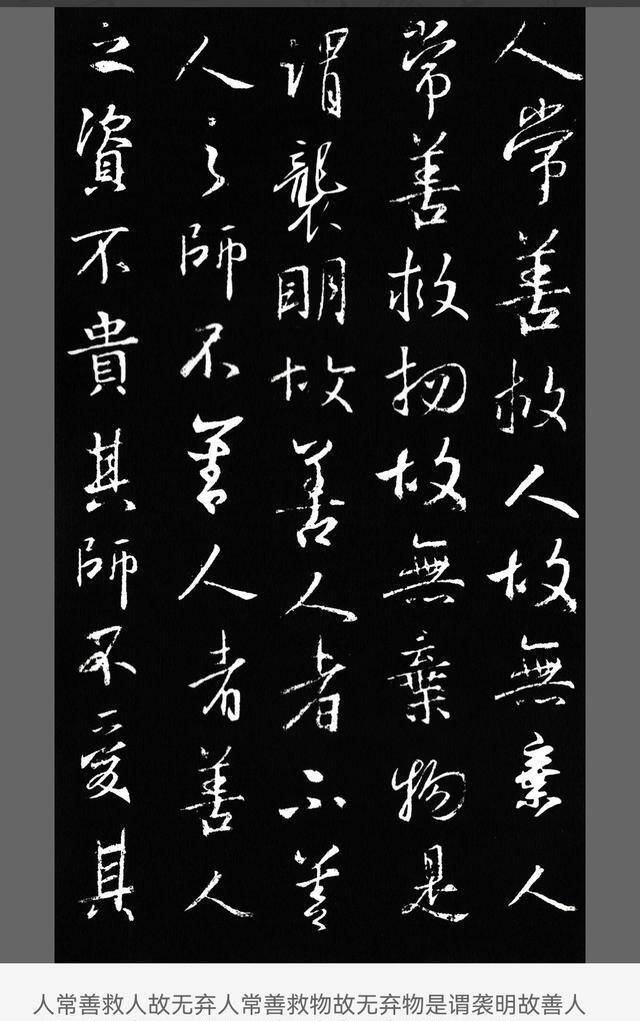 人常善救人故無棄人
常善救物故無棄物是
謂襲明故善人者不善
人之師不善人者善人
之資不貴其師不愛其
人常善救人故无弃人常善救物故无弃物是谓袭明故善人